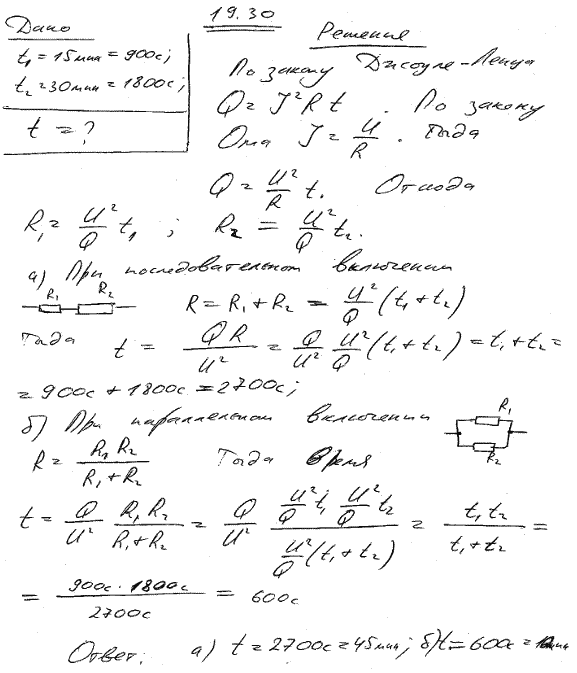 19.30
Дано
t₁ = 15мин = 900с;
t₂ = 30мин = 1800с;
t = ?
Решение
По закону Джоуля-Ленца
Q = J²Rt. По закону
Ома J = U/R. Тогда
Q = U²/R t. Отсюда
R₁ = U²/Q t₁; R₂ = U²/Q t₂.
а) При последовательном включении
R₁ R₂ R = R₁ + R₂ = U²/Q (t₁ + t₂)
Тогда t = QR/U² = Q/U² U²/Q (t₁ + t₂) = t₁ + t₂ =
= 900с + 1800с = 2700с;
б) При параллельном включении
R₁
R = R₁R₂/(R₁ + R₂) Тогда время
R₂
t = Q/U² R₁R₂/(R₁ + R₂) = Q/U² (U²/Q t₁ U²/Q t₂)/(U²/Q (t₁ + t₂)) = t₁t₂/(t₁ + t₂) =
= 900с · 1800с/2700с = 600с
Ответ: а) t = 2700с = 45мин; б) t = 600с = 10мин